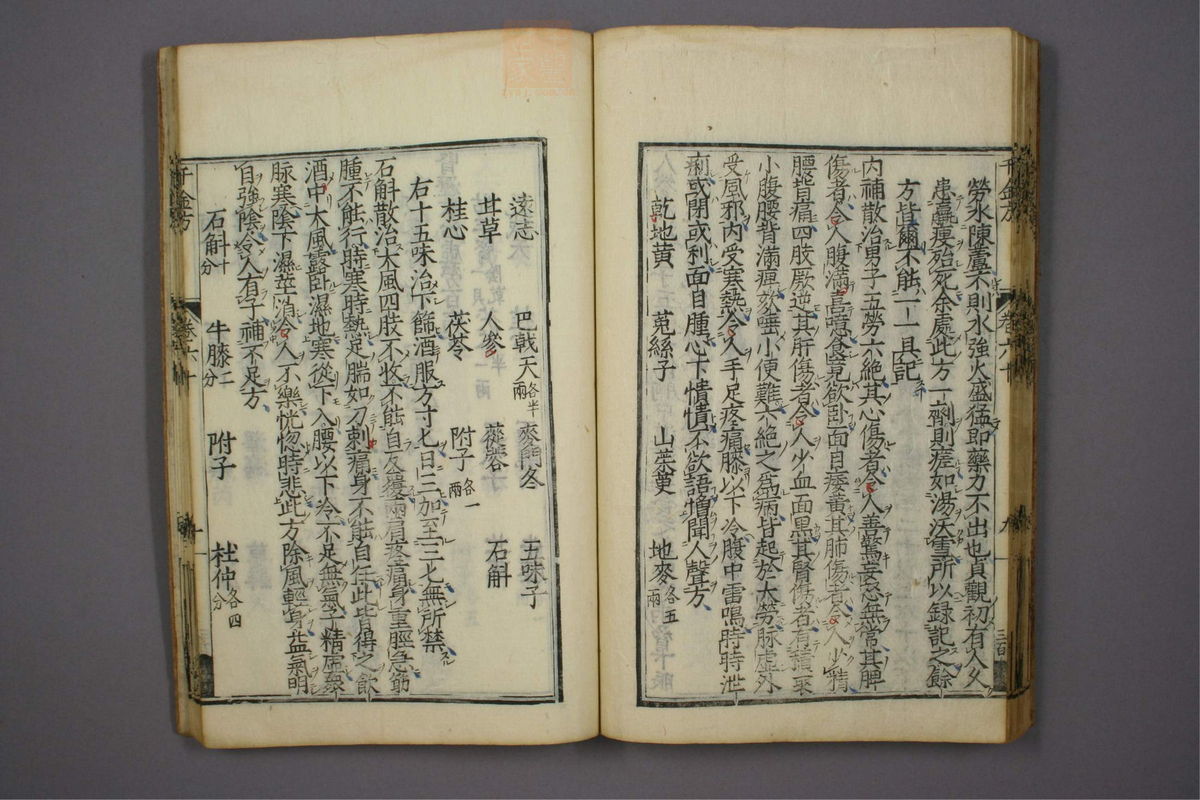 勞水陳蘆不則水強火盛猛即藥力不出也貞觀初有人久
患羸瘦殆死余處此方一劑則瘥如湯沃雪所以録記之餘
方皆爾不能一一具記
內補散治男子五勞六絶其心傷者令人善驚妄怒無常其脾
傷者令人腹滿喜噫食竟欲臥面目痿黃其肺傷者令人少精
腰背痛四肢厥逆其肝傷者令人少血面黑其腎傷者有積聚
小腹腰背滿痺欬唾小便難六絶之爲病皆起於大勞脉虛外
受風邪內受寒熱令人手足疼痛膝以下冷腹中雷鳴時時泄
痢或閉或利面目腫心下憒憒不欲語憎聞人聲方
乾地黃 菟絲子 山茱萸 地麥各五兩
遠志 巴戟天各半兩 麥門冬 五味子
甘草 人參 蓯蓉 石斛
桂心 茯苓 附子各一兩
右十五味治下篩酒服方寸匕日三加至三匕無所禁
石斛散治大風四肢不收不能自反覆兩肩疼痛身重脛急筋
腫不能行時寒時熱足腨如刀刺痛身不能自任此皆得之飲
酒中大風露臥濕地寒從下入腰以下冷不足無氣子精虛衆
脉寒陰下濕莖消令人不樂恍惚時悲此方除風輕身益氣明
目強陰令人有子補不足方
石斛十分 牛膝二分 附子 杜仲各四分
千金方
卷六十